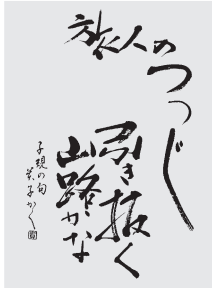 旅人の
つつじ
引き抜く
山路かな
子規の句